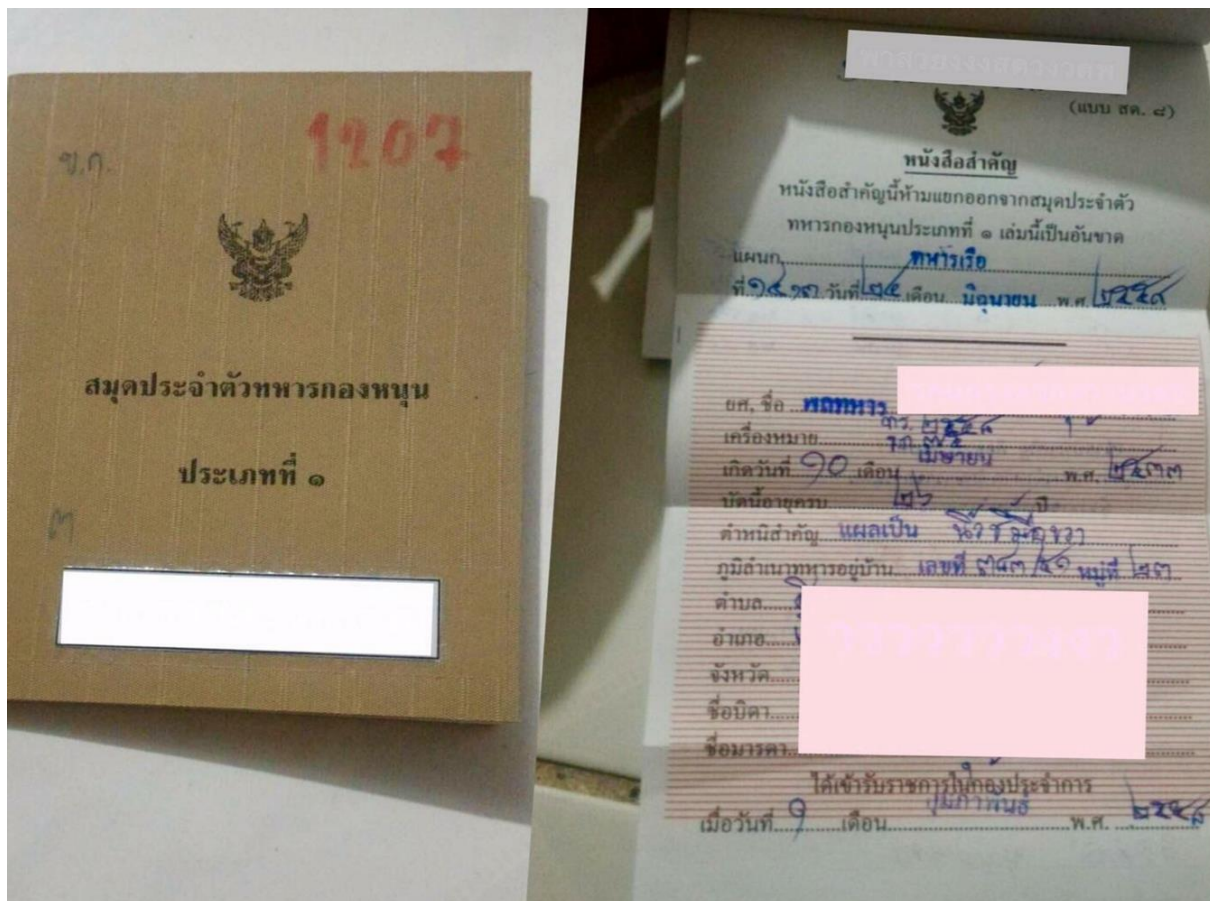 ข.ก.
1207
สมุดประจำตัวทหารกองหนุน
ประเภทที่ ๑
๓
(แบบ สด. ๘)
หนังสือสำคัญ
หนังสือสำคัญนี้ห้ามแยกออกจากสมุดประจำตัว
ทหารกองหนุนประเภทที่ ๑ เล่มนี้เป็นอันขาด
แผนก ทหารเรือ
ที่ วันที่ ๒๔ เดือน มิถุนายน พ.ศ. ๒๕๕๙
ยศ, ชื่อ พลทหาร
เครื่องหมาย ทร. ๒๕๕๘
เกิดวันที่ ๑๐ เดือน เมษายน พ.ศ. ๒๕๓๓
บัดนี้อายุครบ ๒๖ ปี
ตำหนิสำคัญ แผลเป็น นิ้วชี้มือขวา
ภูมิลำเนาทหารอยู่บ้าน เลขที่ หมู่ที่ ๒๓
ตำบล
อำเภอ
จังหวัด
ชื่อบิดา
ชื่อมารดา
ได้เข้ารับราชการในกองประจำการ
เมื่อวันที่ ๑ เดือน กุมภาพันธ์ พ.ศ. ๒๕๕๘